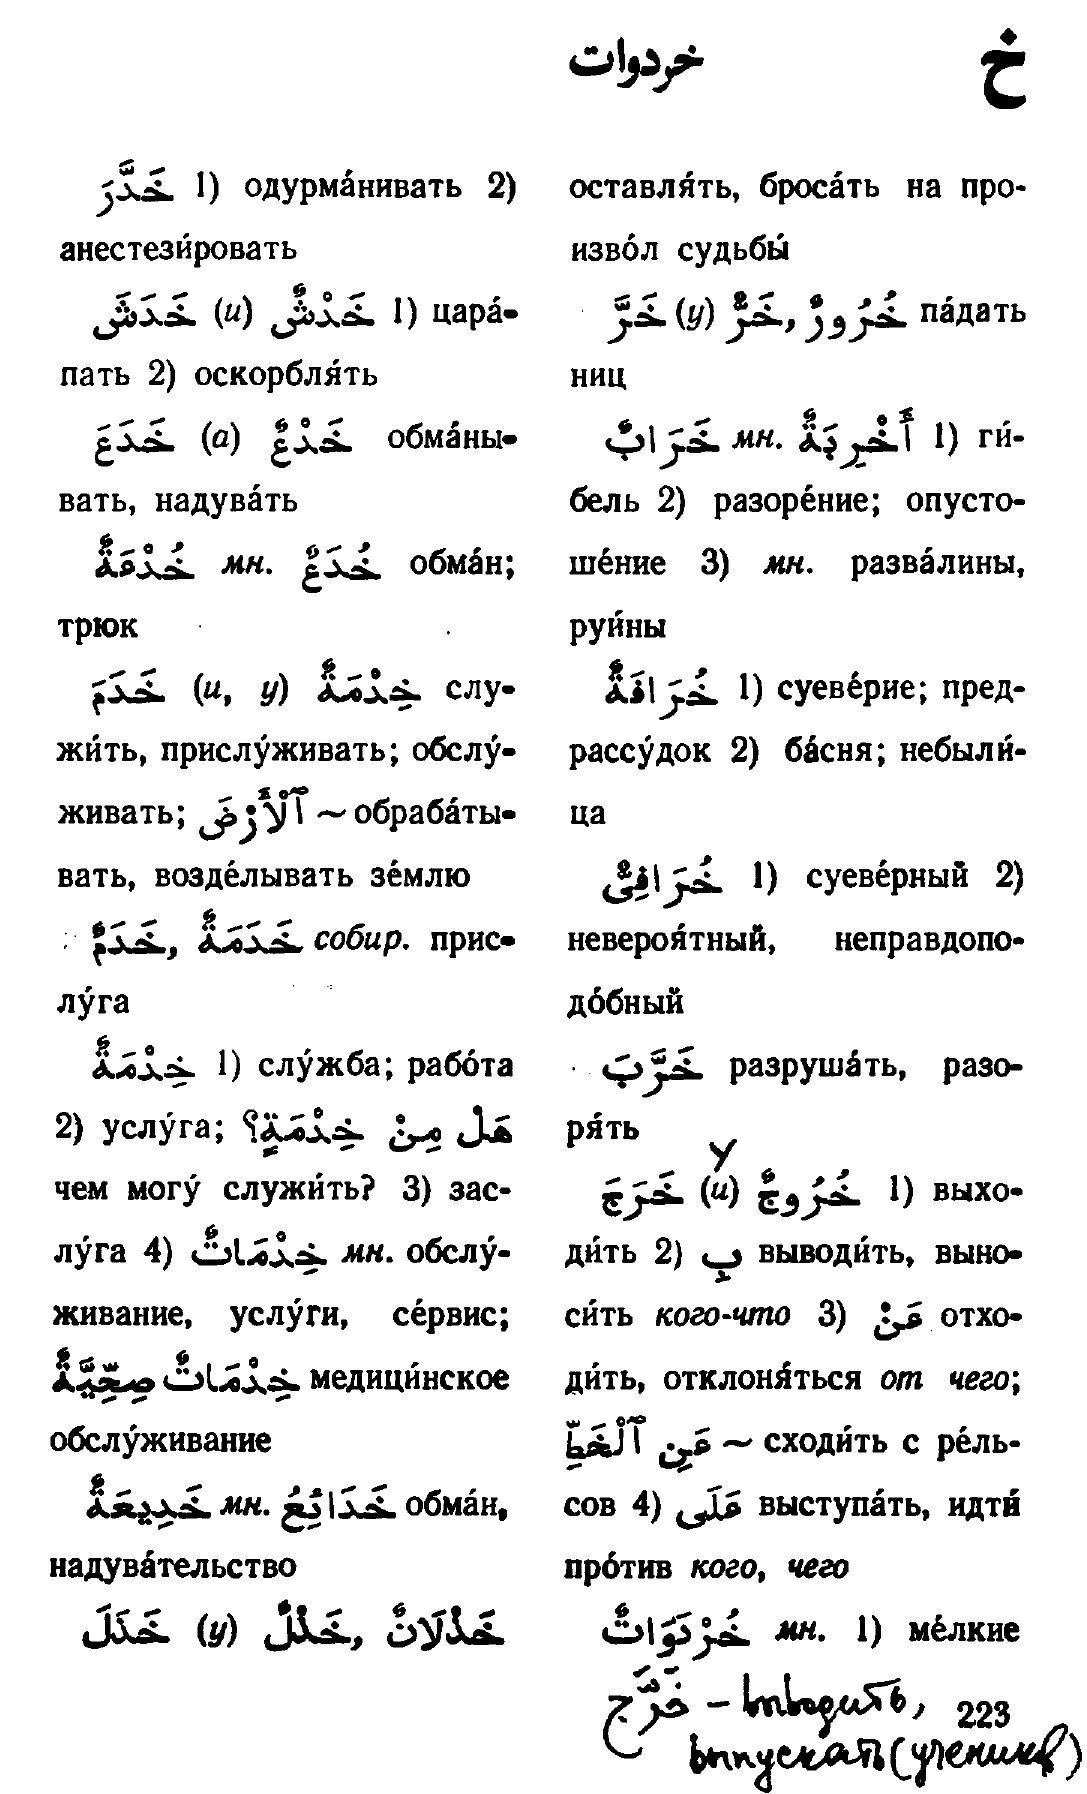 خردوات خ
خَدَّرَ 1) одурма́нивать 2)
анестези́ровать
خَدَشَ (и) خَدْشٌ 1) цара́-
пать 2) оскорбля́ть
خَدَعَ (а) خَدْعٌ обма́ны-
вать, надува́ть
خُدْعَةٌ мн. خُدَعٌ обма́н;
трюк
خَدَمَ (и, у) خِدْمَةٌ слу-
жи́ть, прислу́живать; обслу́-
живать; ٱلْأَرْضَ ~ обраба́ты-
вать, возде́лывать зе́млю
خَدَمٌ, خَدَمَةٌ собир. прис-
лу́га
خِدْمَةٌ 1) слу́жба; рабо́та
2) услу́га; هَلْ مِنْ خِدْمَةٍ؟
чем могу́ служи́ть? 3) зас-
лу́га 4) خِدْمَاتٌ мн. обслу́-
живание, услу́ги, се́рвис;
خِدْمَاتٌ صِحِّيَّةٌ медици́нское
обслу́живание
خَدِيعَةٌ мн. خَدَائِعُ обма́н,
надува́тельство
خَذَلَ (у) خَذْلٌ, خَذْلَانٌ
оставля́ть, броса́ть на про-
изво́л судьбы́
خَرَّ (у) خَرٌّ, خُرُورٌ па́дать
ниц
خَرَابٌ мн. أَخْرِبَةٌ 1) ги́-
бель 2) разоре́ние; опусто-
ше́ние 3) мн. разва́лины,
руи́ны
خُرَافَةٌ 1) суеве́рие; пред-
рассу́док 2) ба́сня; небыли́-
ца
خُرَافِيٌّ 1) суеве́рный 2)
невероя́тный, неправдопо-
до́бный
خَرَّبَ разруша́ть, разо-
ря́ть
у
خَرَجَ (и) خُرُوجٌ 1) выхо-
ди́ть 2) بِ выводи́ть, выно-
си́ть кого-что 3) عَنْ отхо-
ди́ть, отклоня́ться от чего;
عَنِ ٱلْخَطِّ ~ сходи́ть с ре́ль-
сов 4) عَلَى выступа́ть, идти́
про́тив кого, чего
خُرْدَوَاتٌ мн. 1) ме́лкие
خَرَّجَ – выводить,
223
выпускать (учеников)